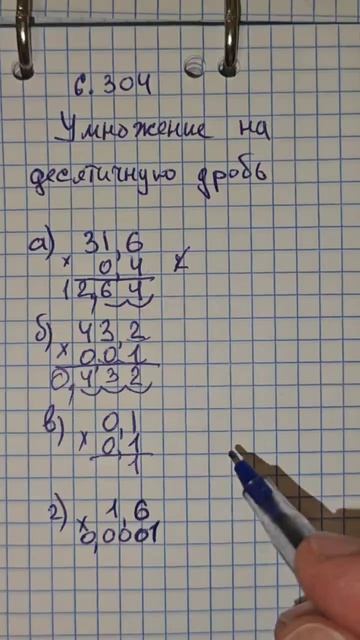 6.304
Умножение на
десятичную дробь
а) 31,6
× 0,4
12,64
б) 43,2
× 0,01
0,432
в) 0,1
× 0,1
1
г) 1,6
× 0,0001